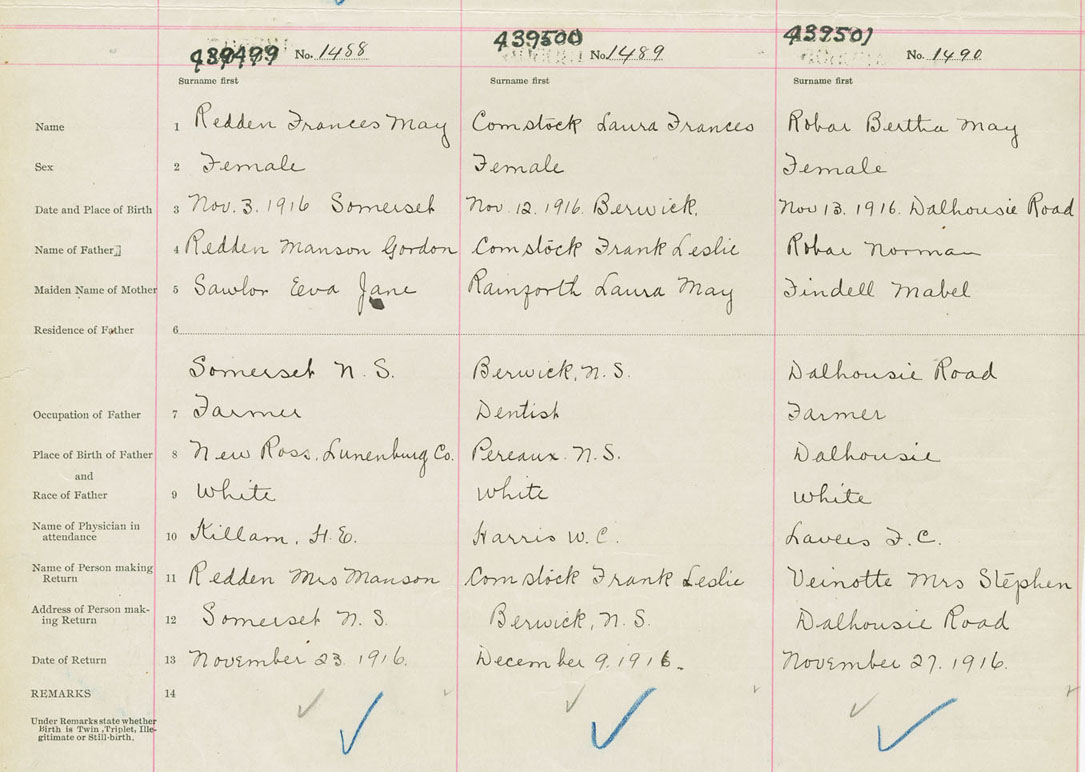 439499 No. 1488 439500 No. 1489 439501 No. 1490
Surname first Surname first Surname first
Name 1 Redden Frances May Comstock Laura Frances Robar Bertha May
Sex 2 Female Female Female
Date and Place of Birth 3 Nov. 3. 1916 Somerset Nov. 12. 1916. Berwick. Nov 13. 1916. Dalhousie Road
Name of Father 4 Redden Manson Gordon Comstock Frank Leslie Robar Norman
Maiden Name of Mother 5 Sawlor Eva Jane Rainforth Laura May Findell Mabel
Residence of Father 6
Somerset N. S. Berwick, N. S. Dalhousie Road
Occupation of Father 7 Farmer Dentist Farmer
Place of Birth of Father 8 New Ross, Lunenburg Co. Pereaux. N. S. Dalhousie
and
Race of Father 9 White White White
Name of Physician in
attendance 10 Killam, H. E. Harris W. C. Lavers F. C.
Name of Person making
Return 11 Redden Mrs Manson Comstock Frank Leslie Veinotte Mrs Stephen
Address of Person mak-
ing Return 12 Somerset N. S. Berwick, N. S. Dalhousie Road
Date of Return 13 November 23. 1916. December 9. 1916. November 27. 1916.
REMARKS 14
Under Remarks state whether
Birth is Twin, Triplet, Ille-
gitimate or Still-birth.